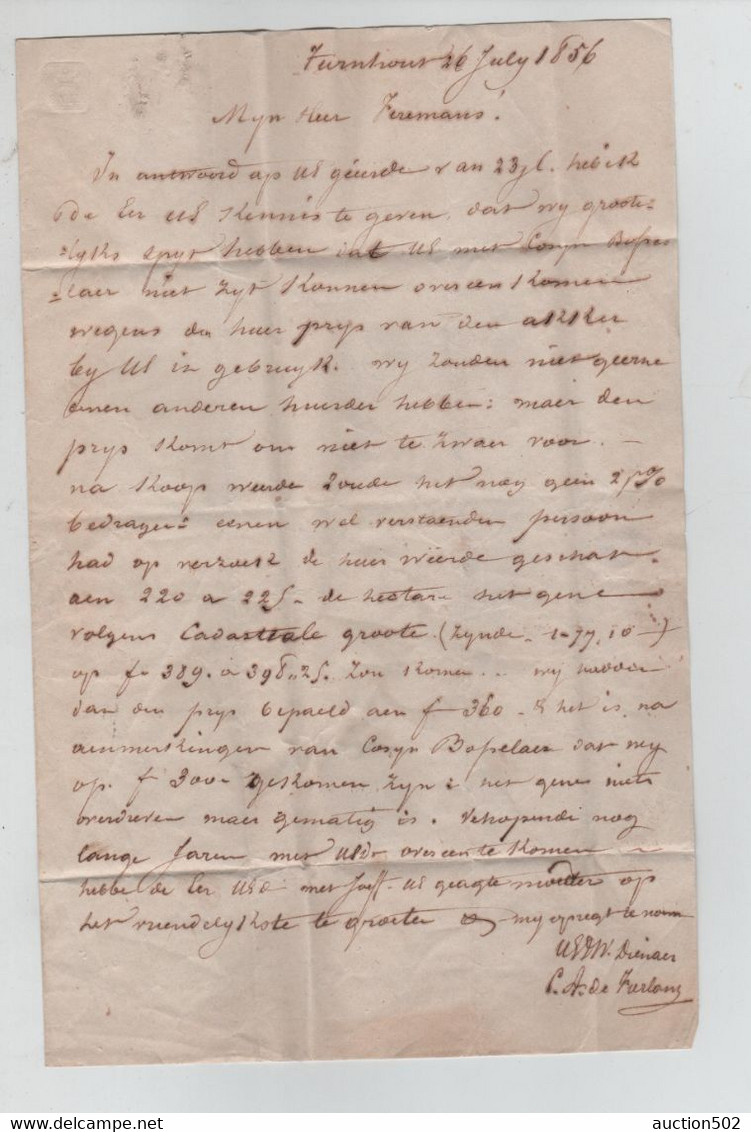 Turnhout 26 July 1856
Myn Heer
In antwoord op UE geeerde van 23 jl. heb ik
de Eer UE Kennis te geven, dat wy groote-
-lyks spyt hebben dat UE met Cosyn Bosse
-laer niet zyt konnen overeen komen
wegens den huer prys van den akker
by UE in gebruyk. wy zouden niet geerne
eenen anderen huerder hebben: maer den
prys komt ons niet te zwaer voor. -
na koop weerde zoude het nog geen 2 p%
bedragen: eenen wel verstaenden persoon
had op verzoek de huer weerde geschat
aen 220 a 225 - de hectare het gene
volgens Cadastrale groote (zynde - 1-77,10 -)
op fr 389. a 398,,25. zou komen... wy hadden
dan den prys bepaeld aen f 360 - & het is na
aenmerkingen van Cosyn Bosselaer dat wy
op f 300 - gekomen zyn: het gene niets
overdreven maer gematig is. verhopende nog
lange Jaren met UEd overeen te komen
hebbe de Eer UEd met UE geagte moeder op
het vriendelykste te groeten & my opregt te noemen
UEDW. Dienaer
de
auction502